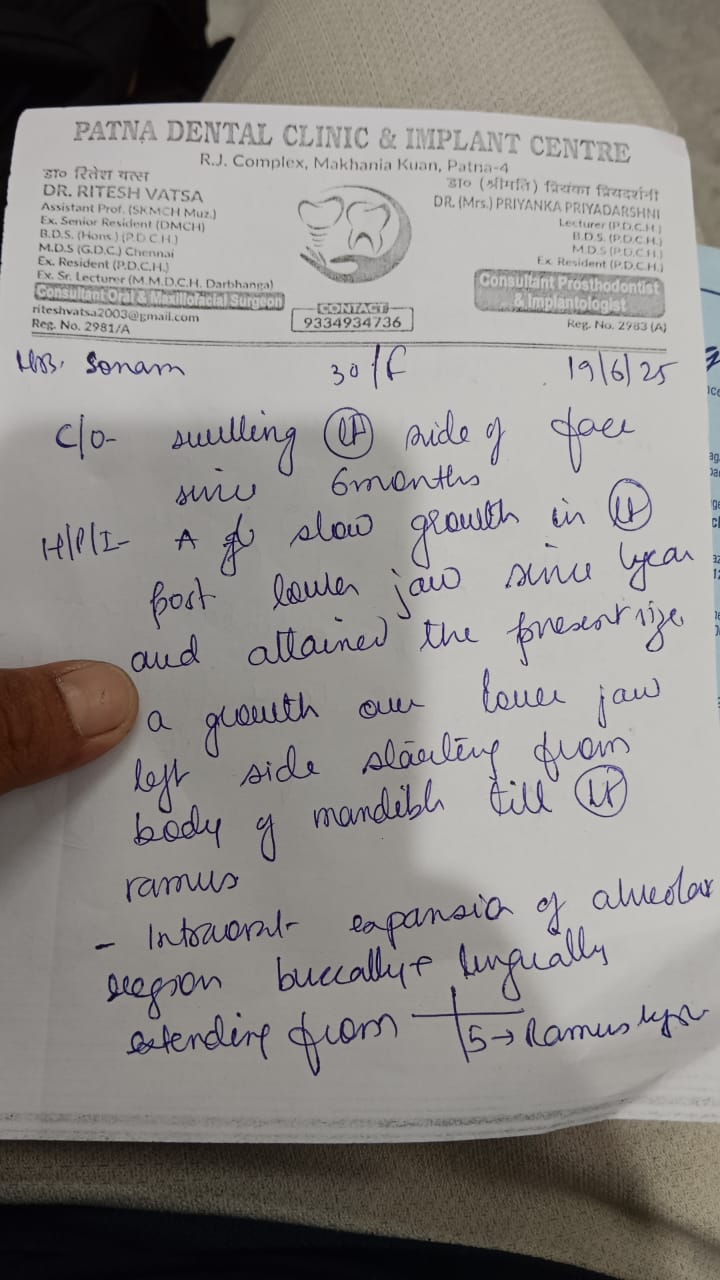 PATNA DENTAL CLINIC & IMPLANT CENTRE
R.J. Complex, Makhania Kuan, Patna-4
डा० रितेश वत्स
DR. RITESH VATSA
Assistant Prof. (SKMCH Muz.)
Ex. Senior Resident (DMCH)
B.D.S. (Hons.) (P.D.C.H.)
M.D.S (G.D.C.) Chennai
Ex. Resident (P.D.C.H.)
Ex. Sr. Lecturer (M.M.D.C.H. Darbhanga)
Consultant Oral & Maxillofacial Surgeon
riteshvatsa2003@gmail.com
Reg. No. 2981/A
CONTACT
9334934736
डा० (श्रीमति) प्रियंका प्रियदर्शनी
DR. (Mrs.) PRIYANKA PRIYADARSHNI
Lecturer (P.D.C.H.)
B.D.S. (P.D.C.H.)
M.D.S (P.D.C.H.)
Ex. Resident (P.D.C.H.)
Consultant Prosthodontist
& Implantologist
Reg. No. 2983 (A)
Mrs. Sonam 30/F 19/6/25
C/O- swelling side of face
since 6months
H/P/I- A slow growth in
post lower jaw since 1year
and attained the present size
a growth over lower jaw
left side starting from
body of till
ramus
- Intraoral of alveolar
region buccally + lingually
extending from 5 → Ramus